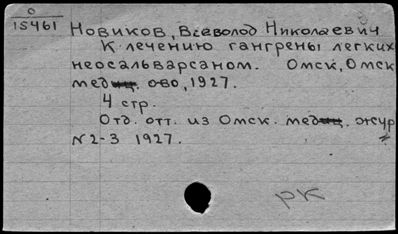 О
15461
Новиков, Всеволод Николаевич
К лечению гангрены легких
неосальварсаном. Омск, Омск
мед. о-во, 1927.
4 стр.
Отд. отт. из Омск. мед. жур
№2-3 1927.
РК